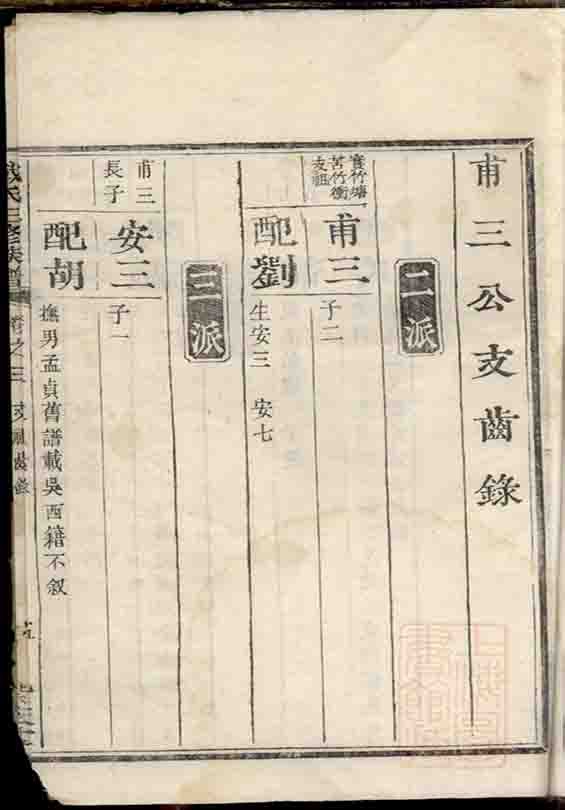 甫三公支齒錄
二派
實竹塘
苦竹衝
支祖
甫三
子二
配劉
生安三 安七
三派
甫三
長子
安三
子一
配胡
撫男孟貞舊譜載吳西籍不叙
氏三修族譜
卷之三